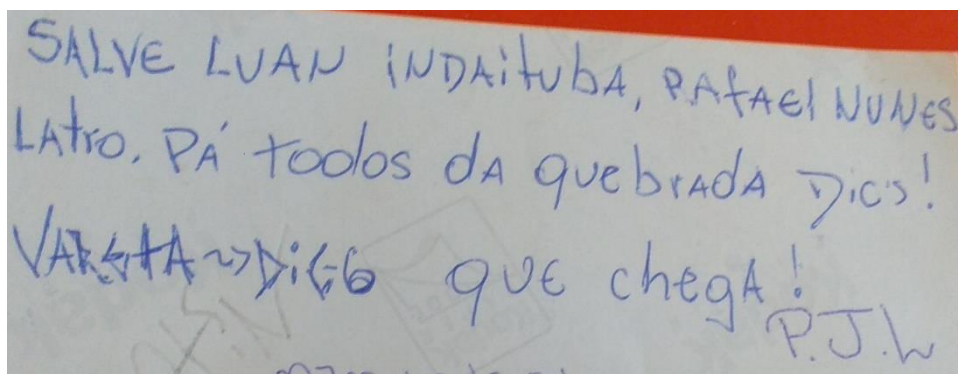 SALVE LUAN iNDAitubA, RAfAEl NUNES
LAtro. PÁ todos dA quebrADA DICS!
VARGTA ~> DiEGO QUE chegA!
P.J.L